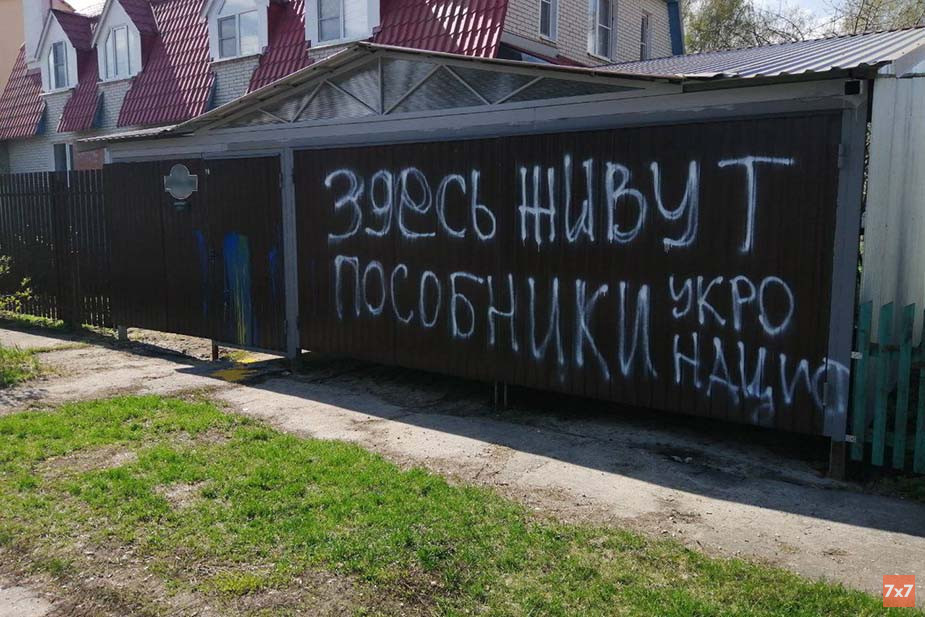 Здесь живут
пособники укро
нациф
7x7